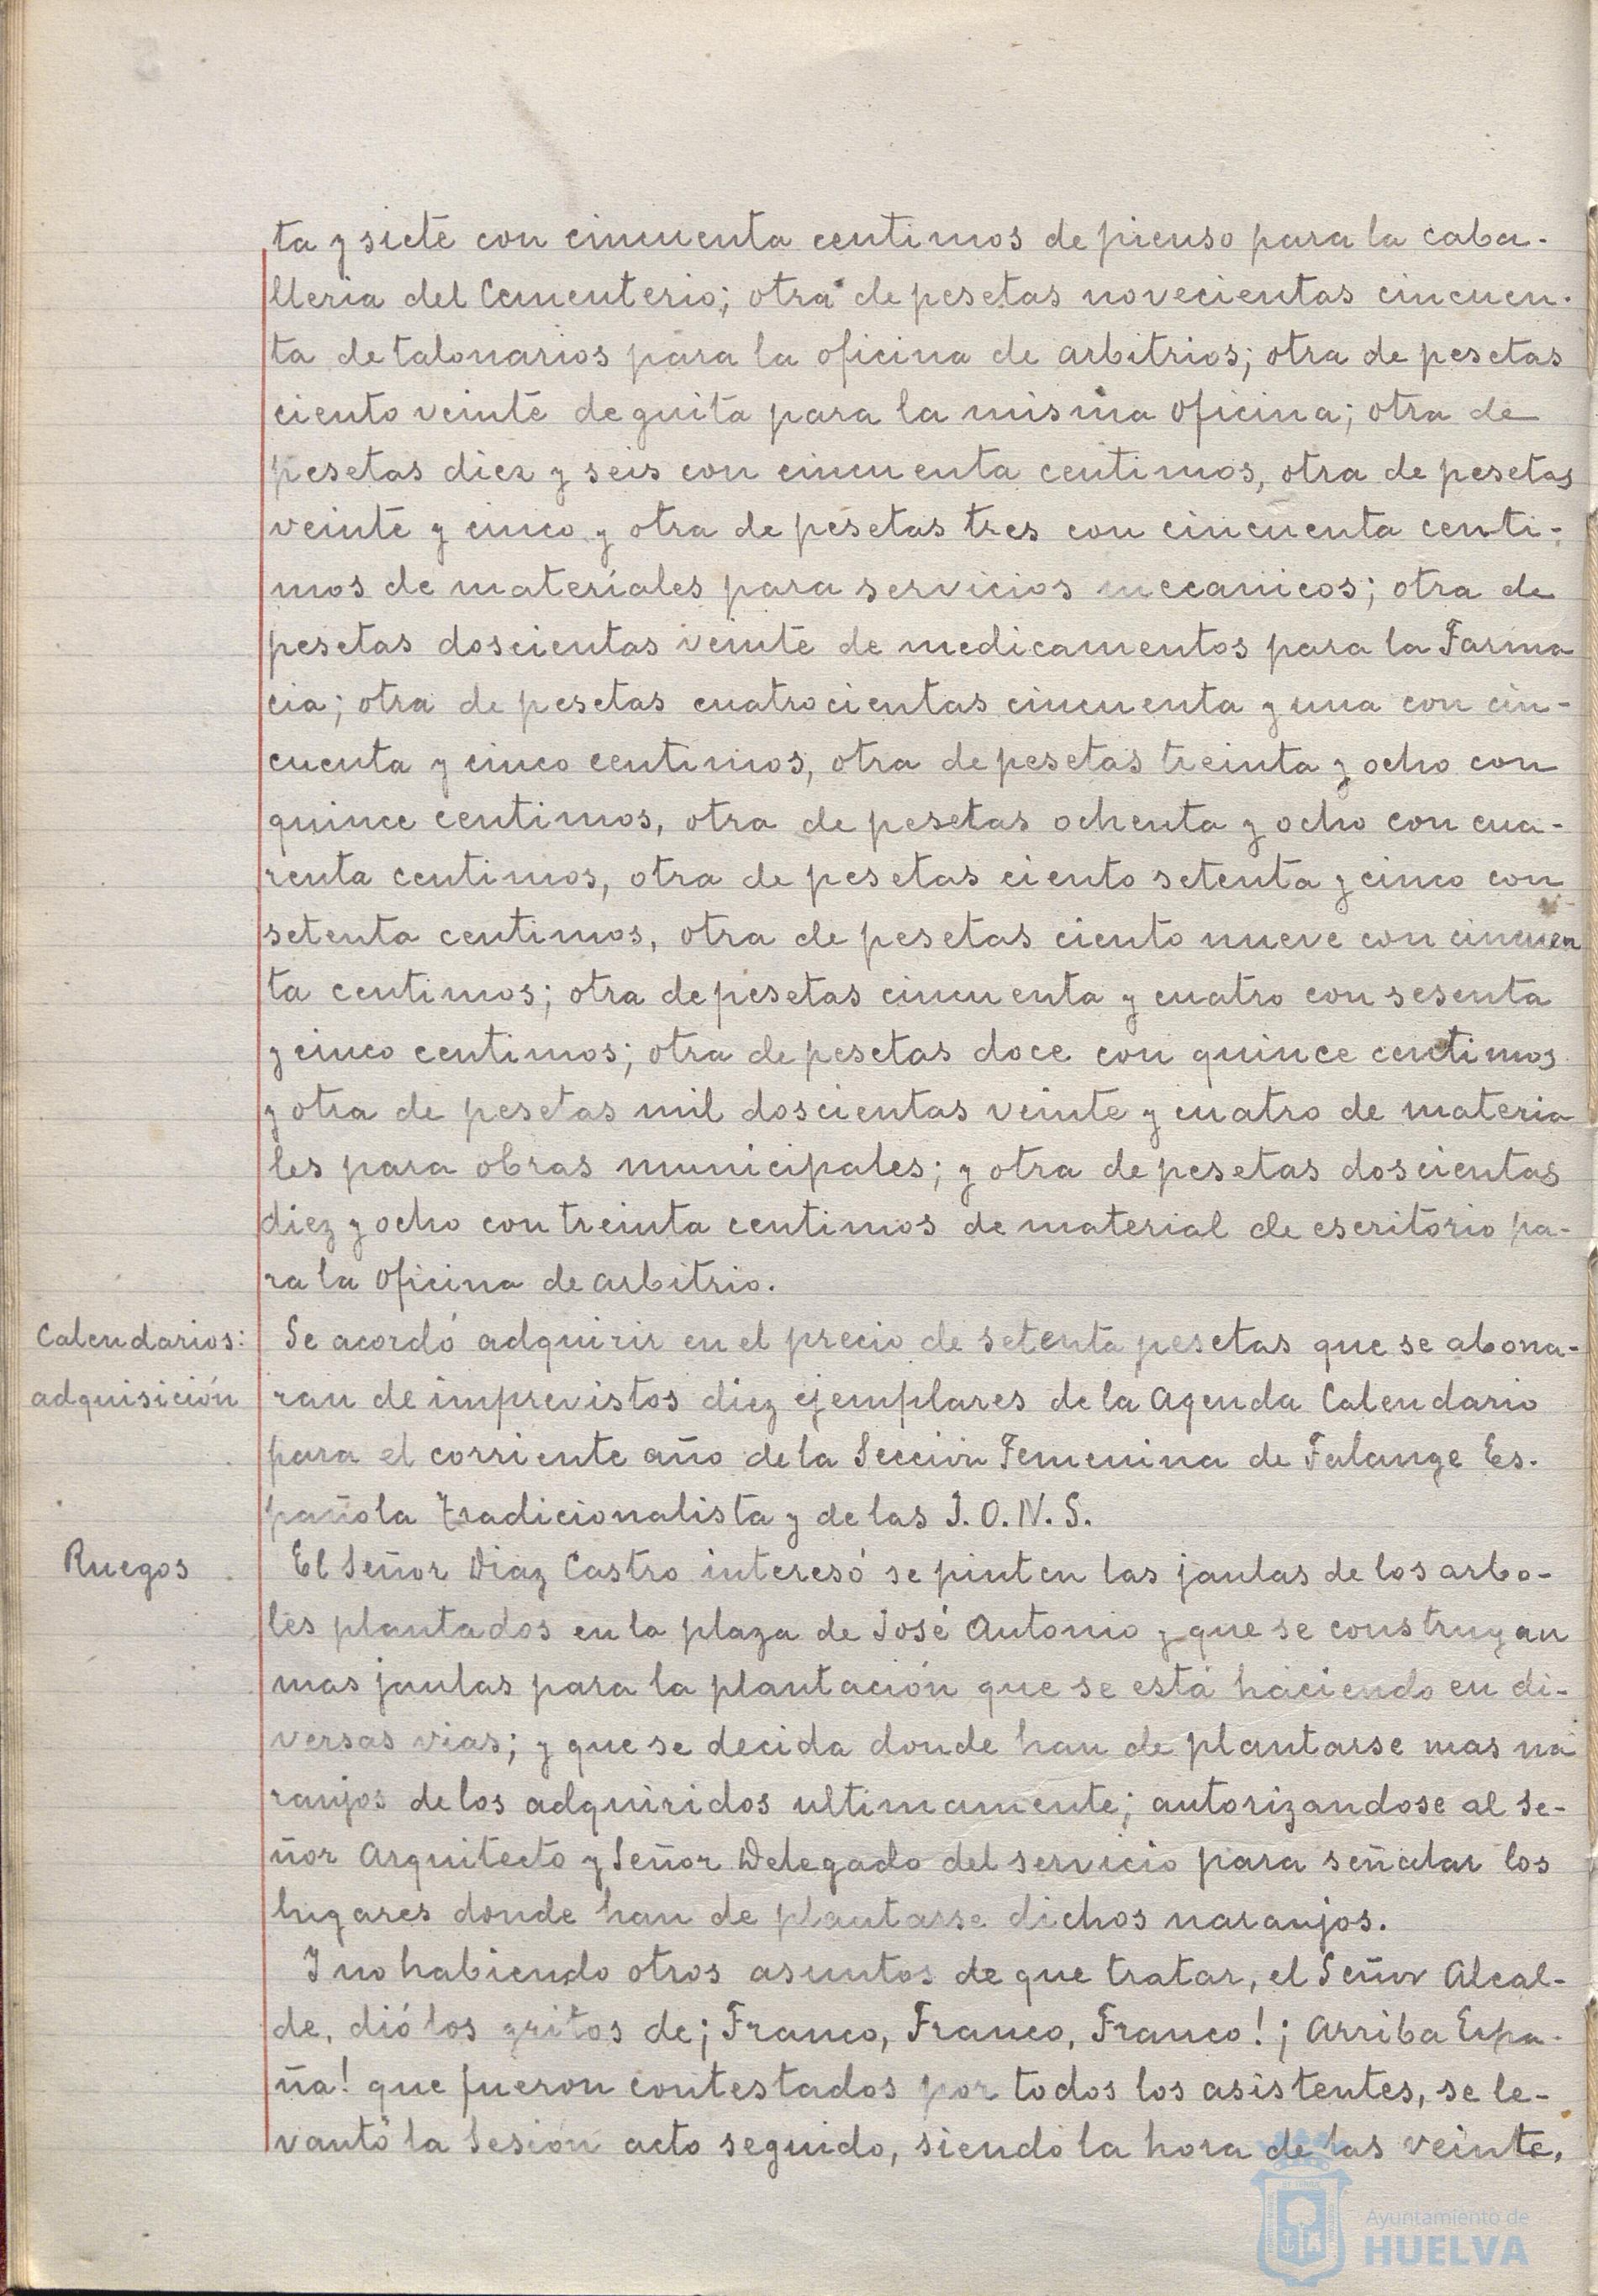 ta y siete con cincuenta centimos de pienso para la caba-
lleria del Cementerio; otra de pesetas novecientas cincuen-
ta de talonarios para la oficina de arbitrios; otra de pesetas
ciento veinte de guita para la misma oficina; otra de
pesetas diez y seis con cincuenta centimos, otra de pesetas
veinte y cinco y otra de pesetas tres con cincuenta centi-
mos de materiales para servicios mecanicos; otra de
pesetas doscientas veinte de medicamentos para la Farma
cia; otra de pesetas cuatrocientas cincuenta y una con cin-
cuenta y cinco centimos, otra de pesetas treinta y ocho con
quince centimos, otra de pesetas ochenta y ocho con cua-
renta centimos, otra de pesetas ciento setenta y cinco con
setenta centimos, otra de pesetas ciento nueve con cincuen
ta centimos; otra de pesetas cincuenta y cuatro con sesenta
y cinco centimos; otra de pesetas doce con quince centimos
y otra de pesetas mil doscientas veinte y cuatro de materia
les para obras municipales; y otra de pesetas doscientas
diez y ocho con treinta centimos de material de escritorio pa-
ra la oficina de arbitrio.
Calendarios: Se acordó adquirir en el precio de setenta pesetas que se abona-
adquisición ran de imprevistos diez ejemplares de la Agenda Calendario
para el corriente año de la Sección Femenina de Falange Es-
pañola Tradicionalista y de las J.O.N.S.
Ruegos El Señor Diaz Castro interesó se pinten las jaulas de los arbo-
les plantados en la plaza de José Antonio y que se construyan
mas jaulas para la plantación que se está haciendo en di-
versas vias; y que se decida donde han de plantarse mas na
ranjos de los adquiridos ultimamente; autorizandose al Se-
ñor Arquitecto y Señor Delegado del servicio para señalar los
lugares donde han de plantarse dichos naranjos.
Y no habiendo otros asuntos de que tratar, el Señor Alcal-
de, dió los gritos de ¡Franco, Franco, Franco! ¡Arriba Espa-
ña! que fueron contestados por todos los asistentes, se le-
vantó la Sesión acto seguido, siendo la hora de las veinte,
Ayuntamiento de
HUELVA